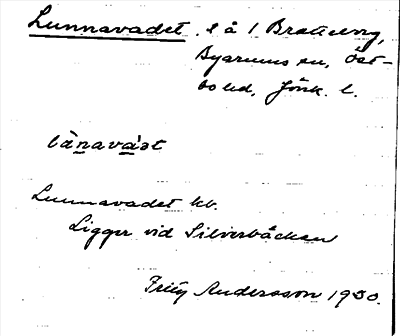 Lunnavadet. l å 1 Bratteborg,
Byarums sn, Öst-
bo hd, Jönk. l.
Lunnavadet kb.
Ligger vid Silverbäcken
Fritz Andersson 1930.